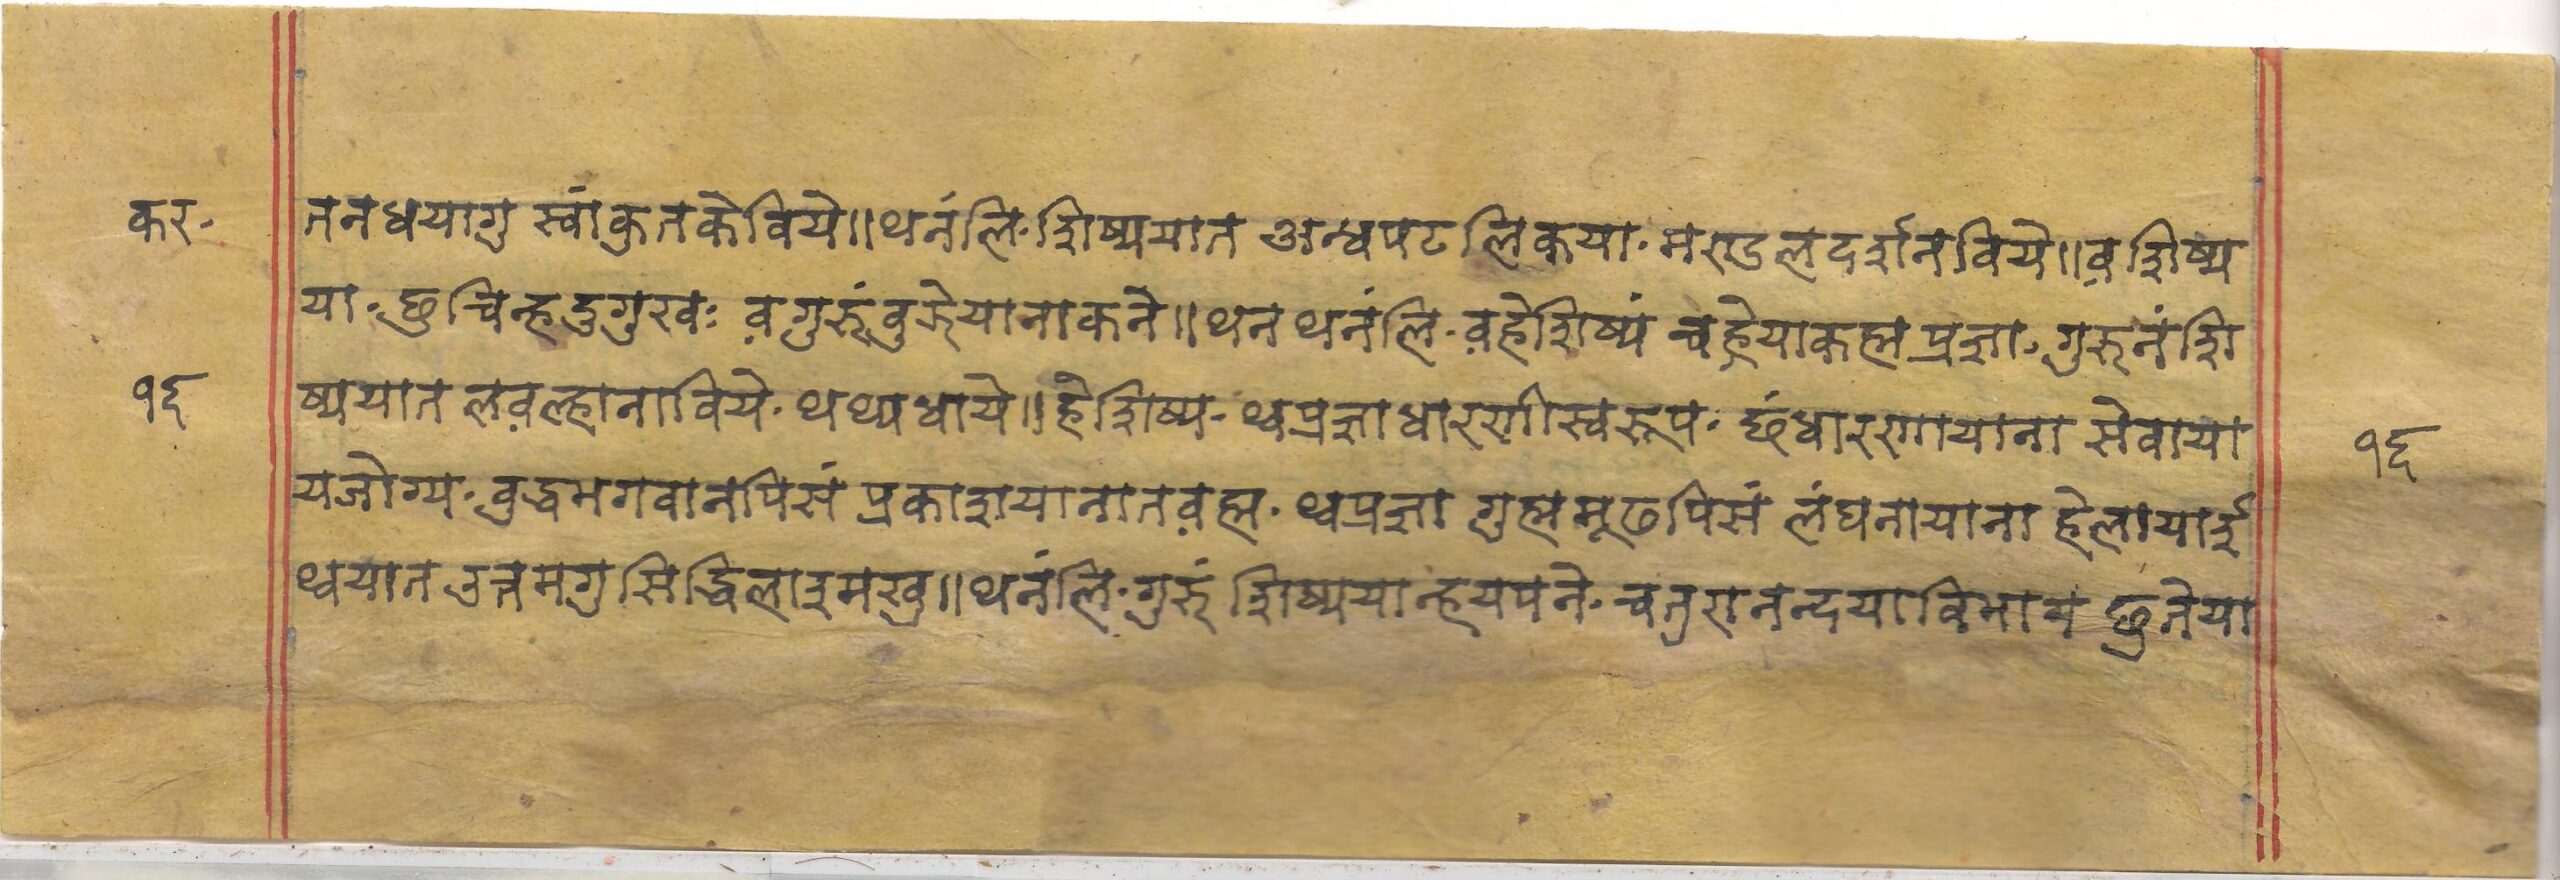 कर॰ तनधयागु स्वांकुतकेविये॥थनंलि॰शिष्ययात अन्धपटलिकया॰मण्डलदर्शनविये॥व़शिष्य
या॰छुचिन्हदुगुखः व़गुरूंवुरेयानाकने॥थनथनंलि॰व़हेशिष्यं च्वहेयाकह्म प्रज्ञा॰गुरूनंशि
१६ ष्ययात लव़ल्हानाविये॰थथ्यधाये॥हेशिष्य॰थ्वप्रज्ञाधारणीस्वरूप॰छंधारणायाना सेवाया १६
यजोग्य॰वुद्धभगवानपिसं प्रकाशयानातव़ह्म॰थ्वप्रज्ञा गुह्ममूढपिसं लंघनायाना हेलायाई
थ्वयात उत्तमगु सिद्धिलाइमखु॥थनंलि॰गुरुं शिष्ययान्हयपने॰चतुरानन्दयाविभाग छुतेया